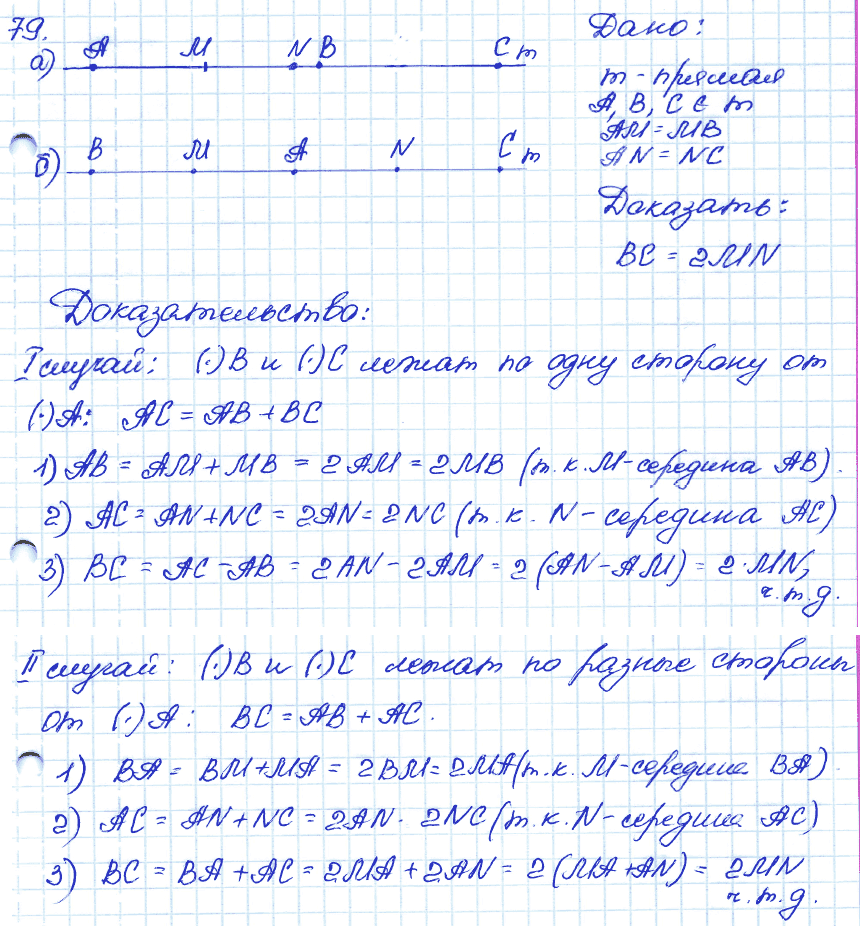 79.
а) A M N B C m
б) B M A N C m
Дано:
m - прямая
A, B, C ∈ m
AM = MB
AN = NC
Доказать:
BC = 2MN
Доказательство:
I случай: (·)B и (·)C лежат по одну сторону от
(·)A: AC = AB + BC
1) AB = AM + MB = 2AM = 2MB (т.к. M-середина AB).
2) AC = AN + NC = 2AN = 2NC (т.к. N - середина AC)
3) BC = AC - AB = 2AN - 2AM = 2(AN - AM) = 2·MN,
ч.т.д.
II случай: (·)B и (·)C лежат по разные стороны
от (·)A: BC = AB + AC.
1) BA = BM + MA = 2BM = 2MA (т.к. M-середина BA)
2) AC = AN + NC = 2AN · 2NC (т.к. N-середина AC)
3) BC = BA + AC = 2MA + 2AN = 2(MA + AN) = 2MN
ч.т.д.